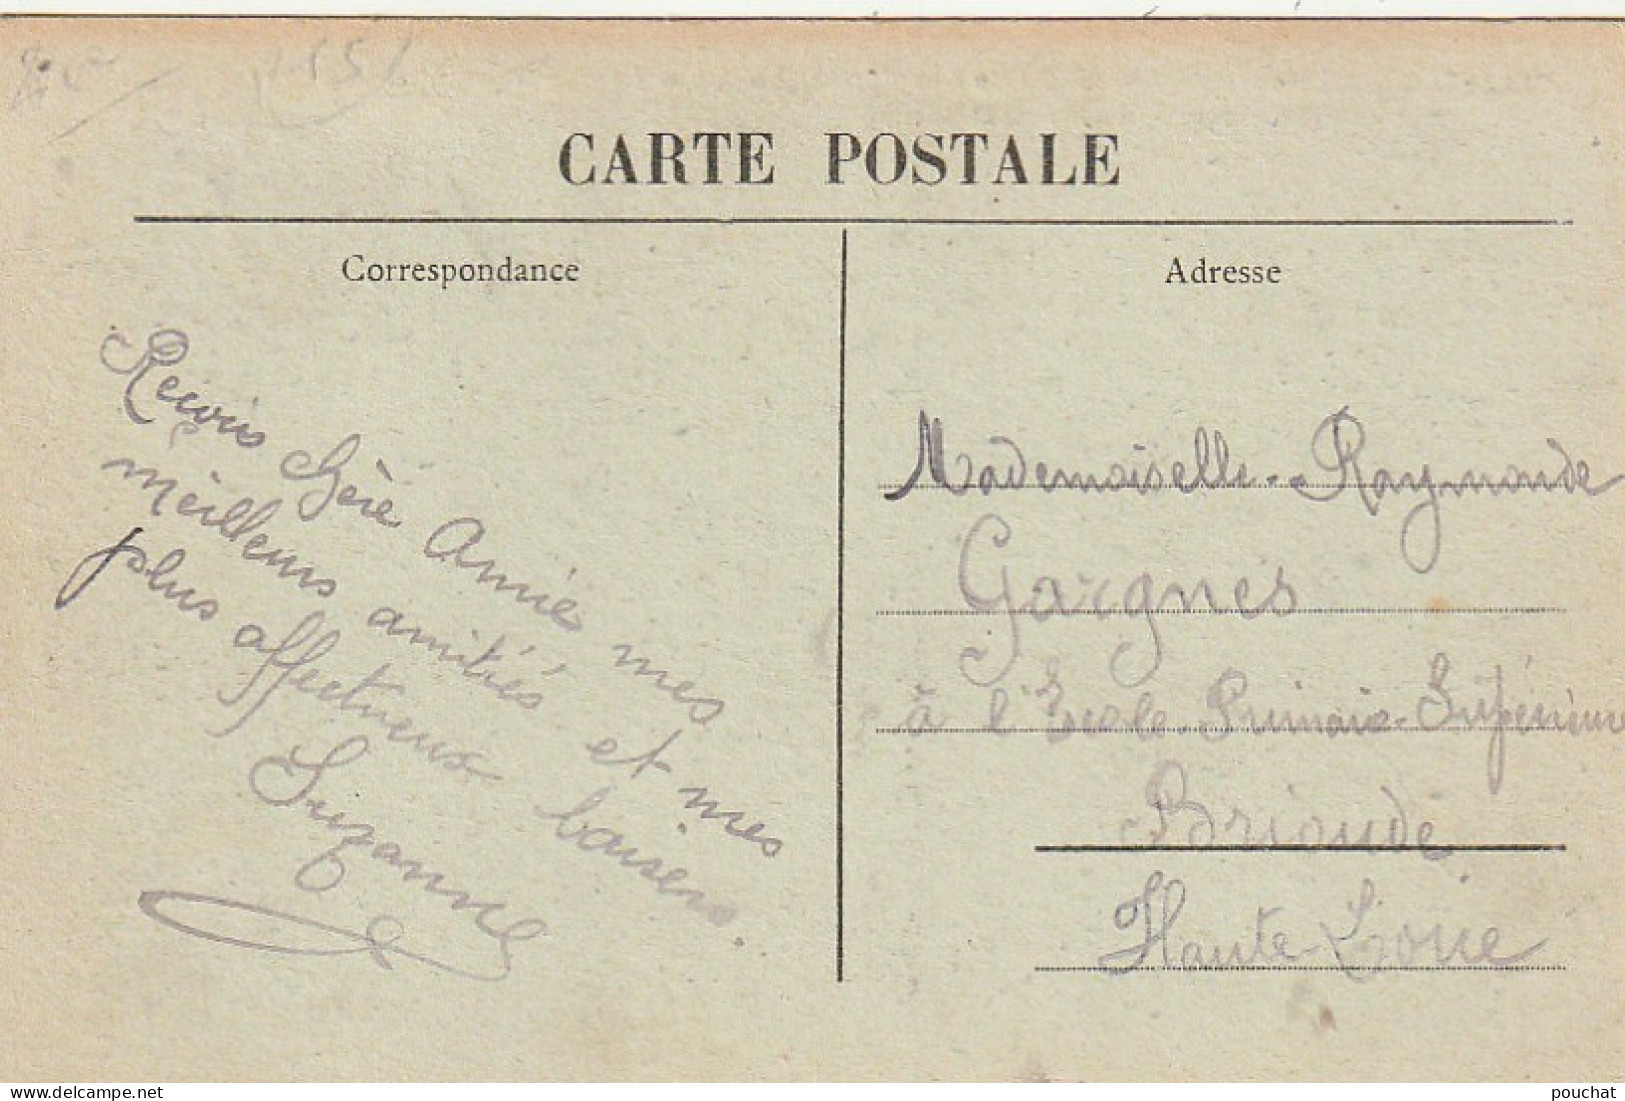 CARTE POSTALE
Correspondance
Adresse
Reçois Chère Amie mes
meilleurs amitiés et mes
plus affectueux baisers.
Suzanne
Mademoiselle Raymonde
Gaignes
à l'Ecole Primaire Supérieure
Brioude
Haute-Loire
pouchat